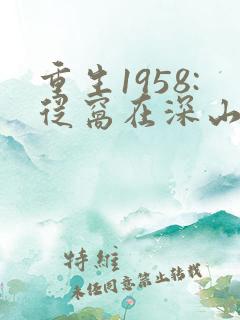 重生1958:
从窝在深山
特维
未经同意禁止转载